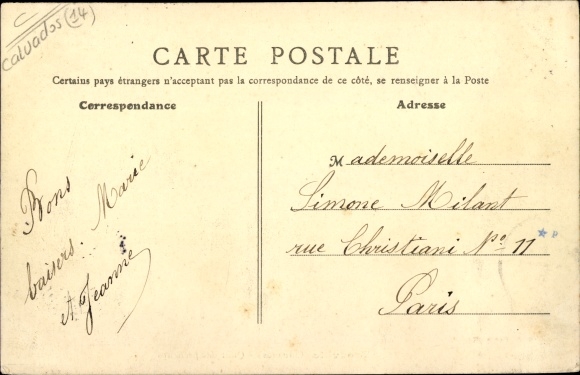 Calvados (14)
CARTE POSTALE
Certains pays étrangers n'acceptant pas la correspondance de ce côté, se renseigner à la Poste
Correspondance
Adresse
Bons
baisers. Marie
et Jeanne
Mademoiselle
Simone Milant
rue Christiani No 11
Paris